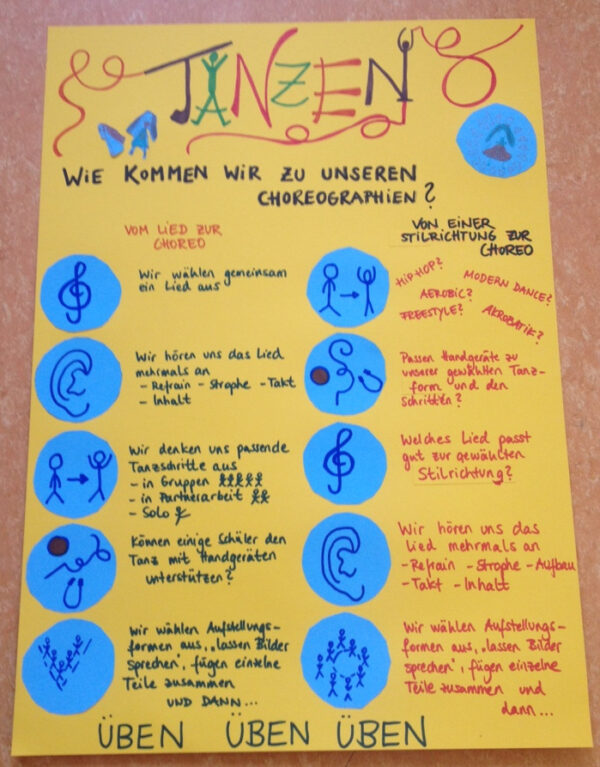 TANZEN
WIE KOMMEN WIR ZU UNSEREN
CHOREOGRAPHIEN?
VOM LIED ZUR
CHOREO
Wir wählen gemeinsam
ein Lied aus
Wir hören uns das Lied
mehrmals an
- Refrain - Strophe - Takt
- Inhalt
Wir denken uns passende
Tanzschritte aus
- in Gruppen
- in Partnerarbeit
- Solo
Können einige Schüler den
Tanz mit Handgeräten
unterstützen?
Wir wählen Aufstellungs-
formen aus, „lassen Bilder
sprechen", fügen einzelne
Teile zusammen
UND DANN...
VON EINER
STILRICHTUNG ZUR
CHOREO
HIP-HOP?
MODERN DANCE?
AEROBIC?
FREESTYLE?
AKROBATIK?
Passen Handgeräte zu
unserer gewählten Tanz-
form und den
Schritten?
Welches Lied passt
gut zur gewählten
Stilrichtung?
Wir hören uns das
Lied mehrmals an
- Refrain - Strophe - Aufbau
- Takt - Inhalt
Wir wählen Aufstellungs-
formen aus, „lassen Bilder
sprechen", fügen einzelne
Teile zusammen und
dann...
ÜBEN ÜBEN ÜBEN